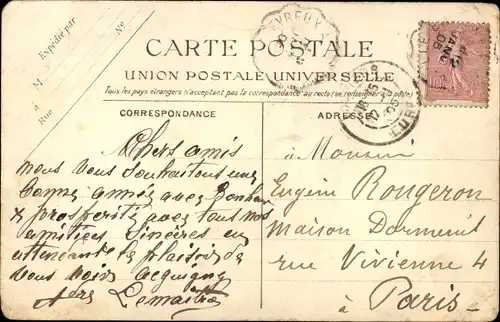 Expédié par
M
Nº
à
Rue
EVREUX
CARTE POSTALE
UNION POSTALE UNIVERSELLE
Tous les pays étrangers n'acceptant pas la correspondance au recto (se renseigner à la poste)
CORRESPONDANCE
ADRESSE
EURE
Chers amis
nous vous souhaitons une
bonne année avec bonheur
& prospérité avec tous nos
amitiées sincères en
attendant le plaisir de
vous voir Acquigny
Lemaitre
à Monsieur
Eugène Rougeron
Maison Dormeuil
rue Vivienne 4
à Paris